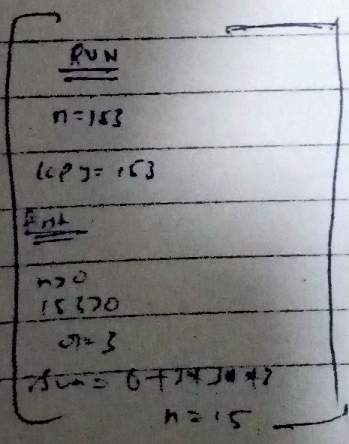 RUN
n=153
kpy=153
n>0
153>0
r=3
Sum=0+3*3*3
n=15